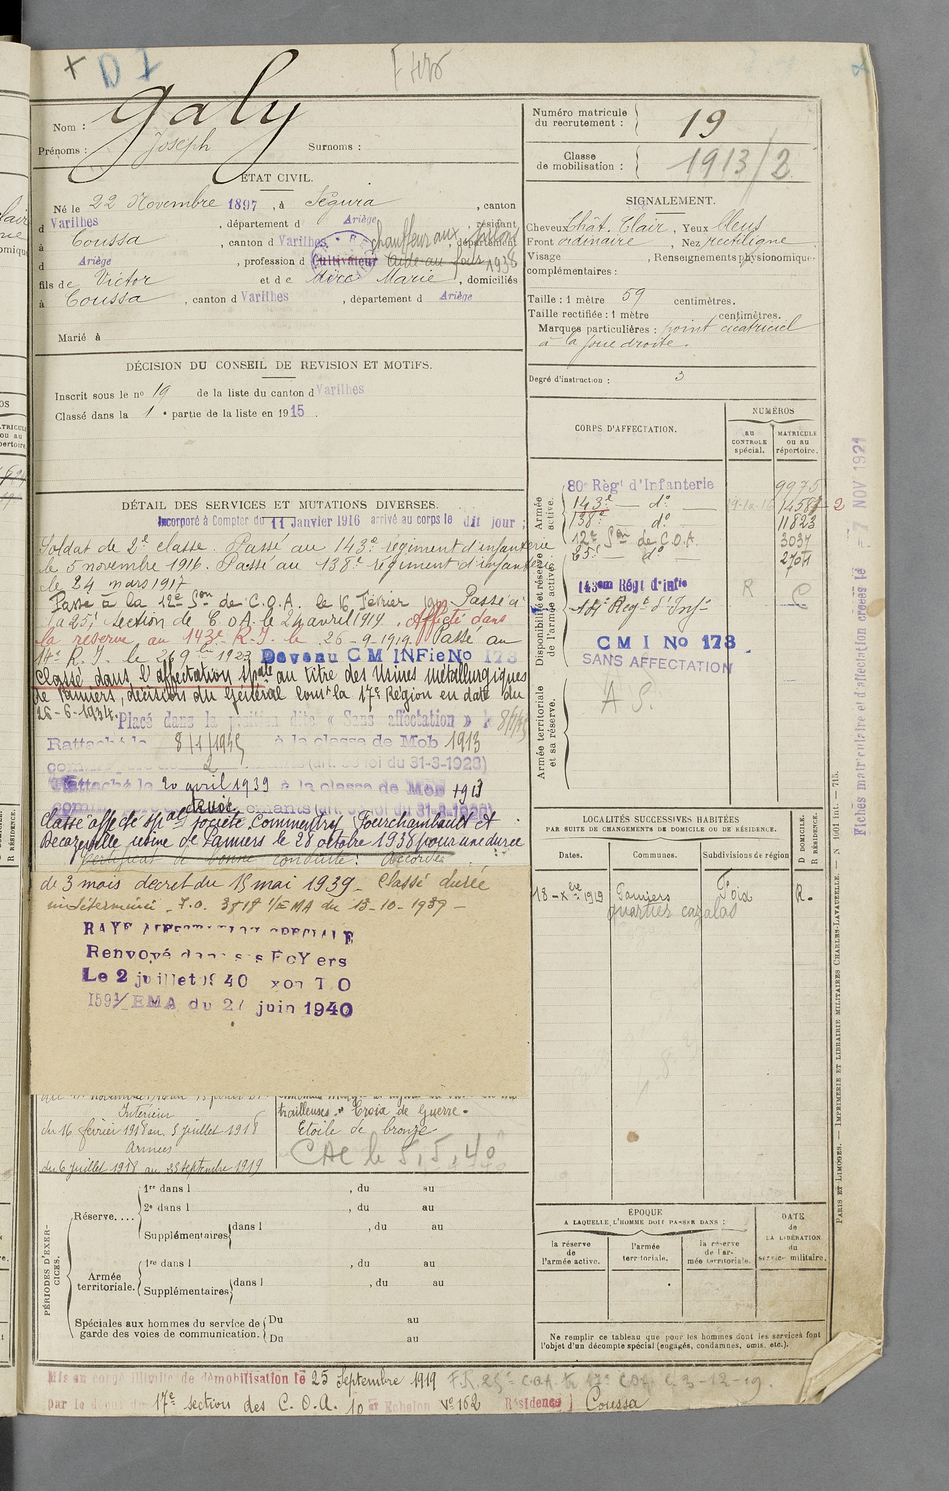 D I
Galy
Nom :
Prénoms : Joseph Surnoms :
ÉTAT CIVIL.
Né le 22 Novembre 1897, à Ségura, canton
d Varilhes, département d Ariège, résidant
à Coussa, canton d Varilhes, département
chauffeur aux
d Ariège, profession d Cultivateur Aide au fours 1938
fils de Victor et de Méric Marie, domiciliés
à Coussa, canton d Varilhes, département d Ariège
Marié à
DÉCISION DU CONSEIL DE REVISION ET MOTIFS.
Inscrit sous le no 19 de la liste du canton d Varilhes
Classé dans la 1e partie de la liste en 1915.
DÉTAIL DES SERVICES ET MUTATIONS DIVERSES.
Incorporé à Compter du 11 Janvier 1916 arrivé au corps le dit jour ;
Soldat de 2e classe. Passé au 143e régiment d'infanterie
le 5 novembre 1916. Passé au 138e régiment d'infanterie
le 24 mars 1917
Passé à la 12e Son de C.O.A. le 16 Février Passé à
la 25e section de C.O.A. le 24 avril 1919. Affecté dans
la réserve au 143e R.I. le 26-9-1919. Passé au
14e R.I. le 1923 Devenu C M INFie No 173
Classé dans l'affectation spale au titre des Usines métallurgiques
de Pamiers, décision du Général Comt la 17e Région en date du
26-6-1934. Placé dans la position dite « Sans affectation »
Rattaché le 8/1/1935 à la classe de Mob 1913
(art. 58 loi du 31-3-1928)
Rattaché le 20 avril 1939 à la classe de Mob 1913
(art. 58 loi du 31-3-1928)
Classé affecté spal Société Commentry Fourchambault et
Decazeville usine de Pamiers le 28 octobre 1938 pour une durée
Certificat de bonne conduite : Accordé
de 3 mois décret du 15 mai 1939 - Classé durée
indéterminée - 1/EMA du 13-10-1939 -
RAYE AFFECTATION SPECIALE
Renvoyé dans ses FoYers
Le 2 juillet 1940
1591/EMA du juin 1940
Intérieur
du 16 février 1918 au 5 juillet 1918
Armées
du 6 juillet 1918 au 25 septembre 1919
trailleuses. » Croix de Guerre.
Etoile de bronze
PÉRIODES D'EXERCICES.
Réserve....
1re dans l , du au
2e dans l , du au
Supplémentaires dans l , du au
Armée territoriale.
1re dans l , du au
Supplémentaires dans l , du au
Spéciales aux hommes du service de garde des voies de communication. Du au
Du au
Mis en congé illimité de démobilisation le 25 Septembre 1919
par le dépôt de 17e section des C.O.A. 10e Echelon No 162 Résidence Coussa
Numéro matricule du recrutement : 19
Classe de mobilisation : 1913/2
SIGNALEMENT.
Cheveux Chât. Clair, Yeux bleus
Front ordinaire, Nez rectiligne
Visage , Renseignements physionomiques
complémentaires :
Taille : 1 mètre 59 centimètres.
Taille rectifiée : 1 mètre centimètres.
Marques particulières : point cicatriciel
à la joue droite.
Degré d'instruction : 3
CORPS D'AFFECTATION.
NUMÉROS
AU CONTROLE spécial.
MATRICULE OU AU répertoire.
Armée active.
80e Régt d'Infanterie 9975
143e - do -
138e - do - 11823
12e Son de C.O.A. 3037
25e do
Disponibilité et réserve de l'armée active.
143em Régt d'infie R
14e Regt d'Inf
C M I No 173
SANS AFFECTATION
Armée territoriale et sa réserve.
A S.
LOCALITÉS SUCCESSIVES HABITÉES
PAR SUITE DE CHANGEMENTS DE DOMICILE OU DE RÉSIDENCE.
Dates. Communes. Subdivisions de région
D DOMICILE.
R RÉSIDENCE.
13 - Xbre 1919 Pamiers Foix R.
quartier cazalas
ÉPOQUE
A LAQUELLE L'HOMME DOIT PASSER DANS :
la réserve de l'armée active.
l'armée territoriale.
la réserve de l'armée territoriale.
DATE de LA LIBÉRATION du service militaire.
Ne remplir ce tableau que pour les hommes dont les services font
l'objet d'un décompte spécial (engagés, condamnés, omis, etc.).
Fiches matriculaire et d'affectation créées le 7 NOV 1921
PARIS ET LIMOGES. — IMPRIMERIE ET LIBRAIRIE MILITAIRES CHARLES-LAVAUZELLE. — N 1001 int. — 715.